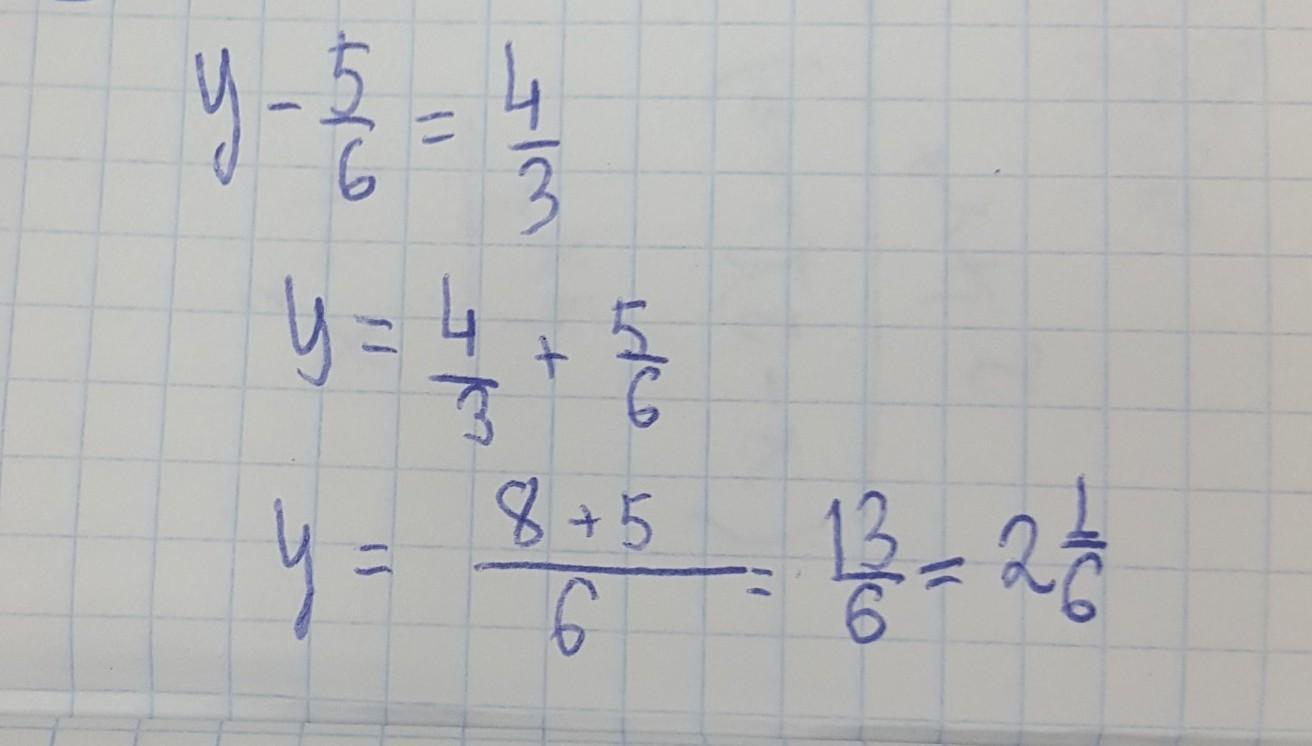 y - 5/6 = 4/3
y = 4/3 + 5/6
y = (8 + 5)/6 = 13/6 = 2 1/6